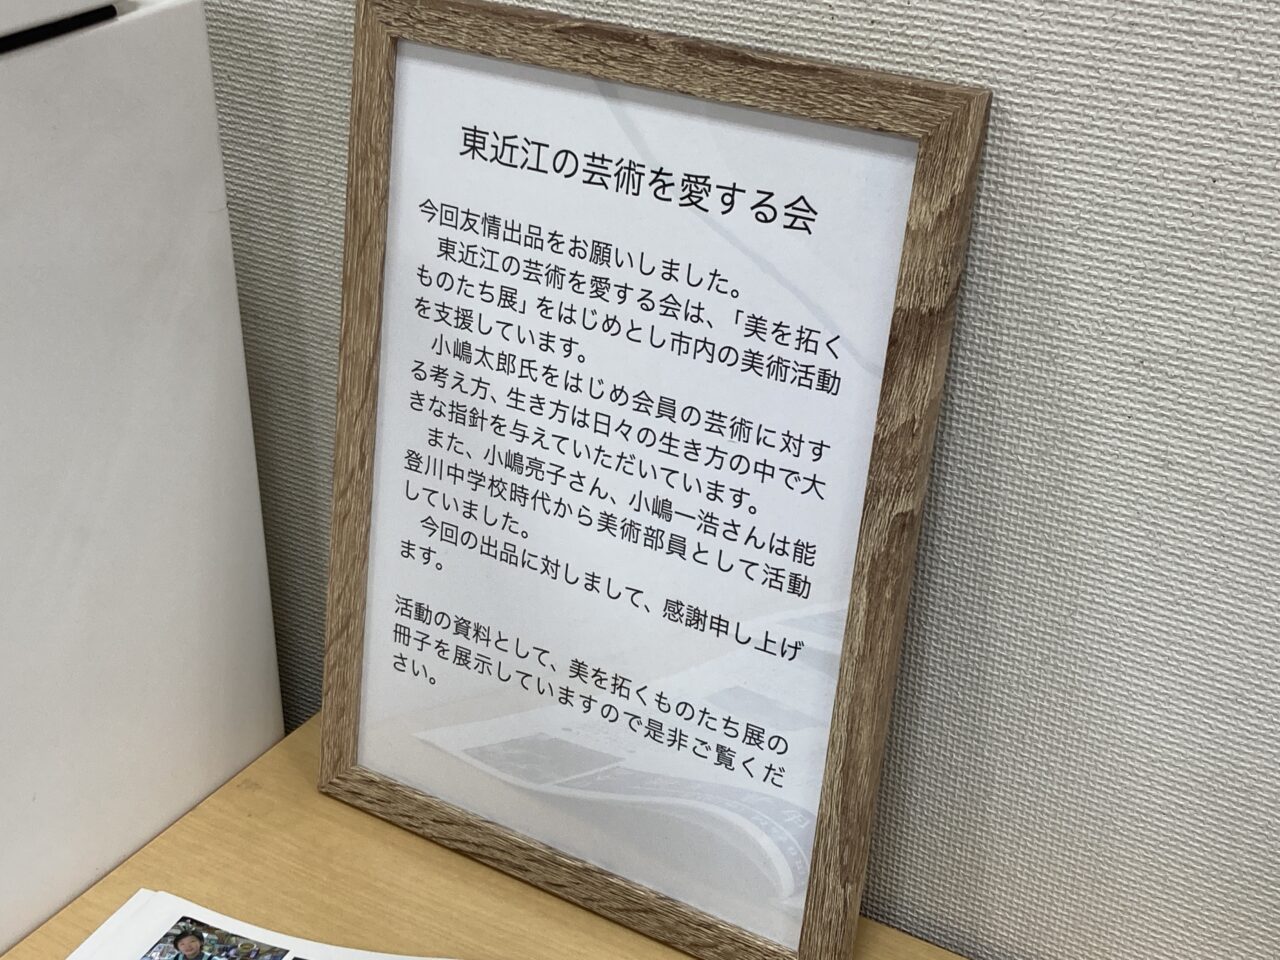 東近江の芸術を愛する会
今回友情出品をお願いしました。
　東近江の芸術を愛する会は、「美を拓く
ものたち展」をはじめとし市内の美術活動
を支援しています。
　小嶋太郎氏をはじめ会員の芸術に対す
る考え方、生き方は日々の生き方の中で大
きな指針を与えていただいています。
　また、小嶋亮子さん、小嶋一浩さんは能
登川中学校時代から美術部員として活動
していました。
　今回の出品に対しまして、感謝申し上げ
ます。
活動の資料として、美を拓くものたち展の
冊子を展示していますので是非ご覧くだ
さい。